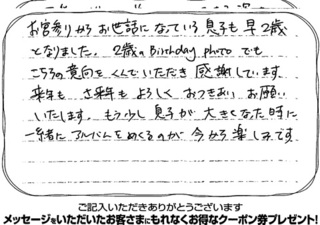 お宮参りからお世話になっている息子も早2歳
となりました。2歳のBirthday photoでも
こちらの意向をくんでいただき感謝しています
来年も さ来年も よろしくおつきあいお願い
いたします。もう少し息子が大きくなった時に
一緒にアルバムをめくるのが今から楽しみです
ご記入いただきありがとうございます
メッセージをいただいたお客さまにもれなくお得なクーポン券プレゼント!